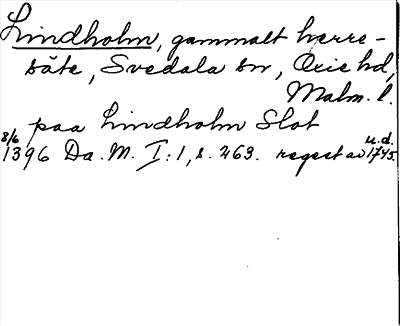 Lindholm, gammalt herre-
säte, Svedala sn, Oxie hd,
Malm. l.
paa Lindholm Slot
8/6 1396 Da. M. I: 1, s. 263. regest av u.d. 1745.